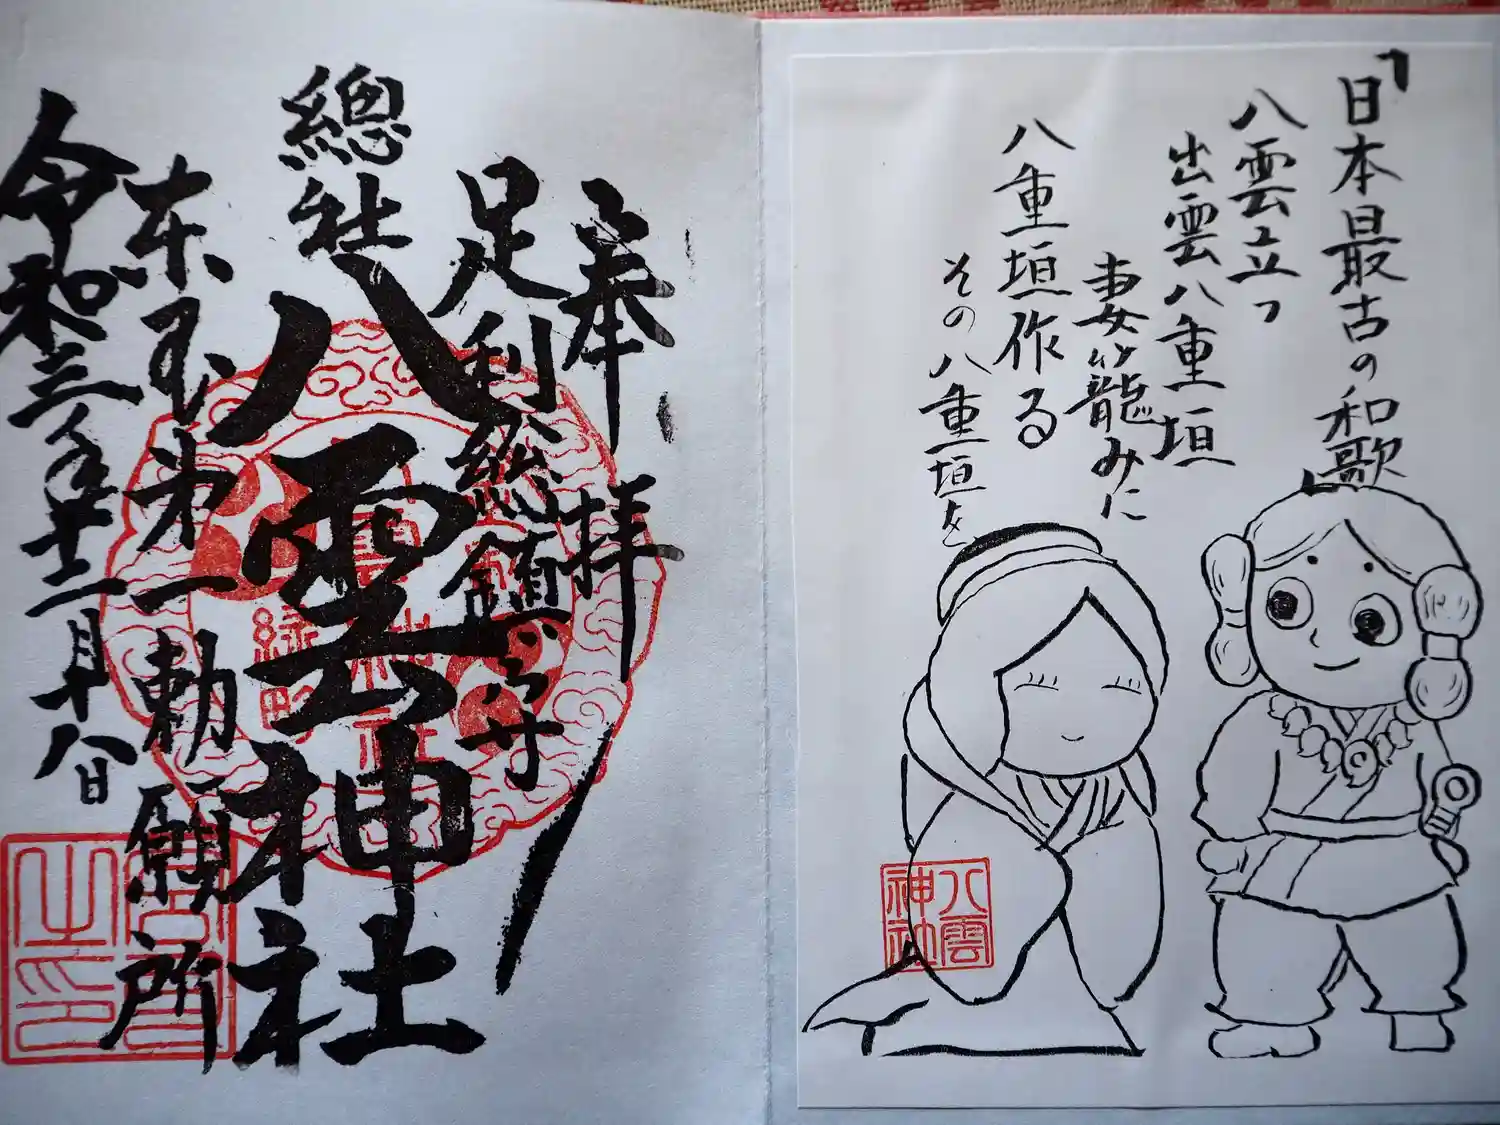 「日本最古の和歌」
八雲立つ
出雲八重垣
妻籠みに
八重垣作る
その八重垣を
八雲神社
奉拝
足利総鎮守
總社
八雲神社
緑町
東国第一勅願所
令和三年十二月十八日